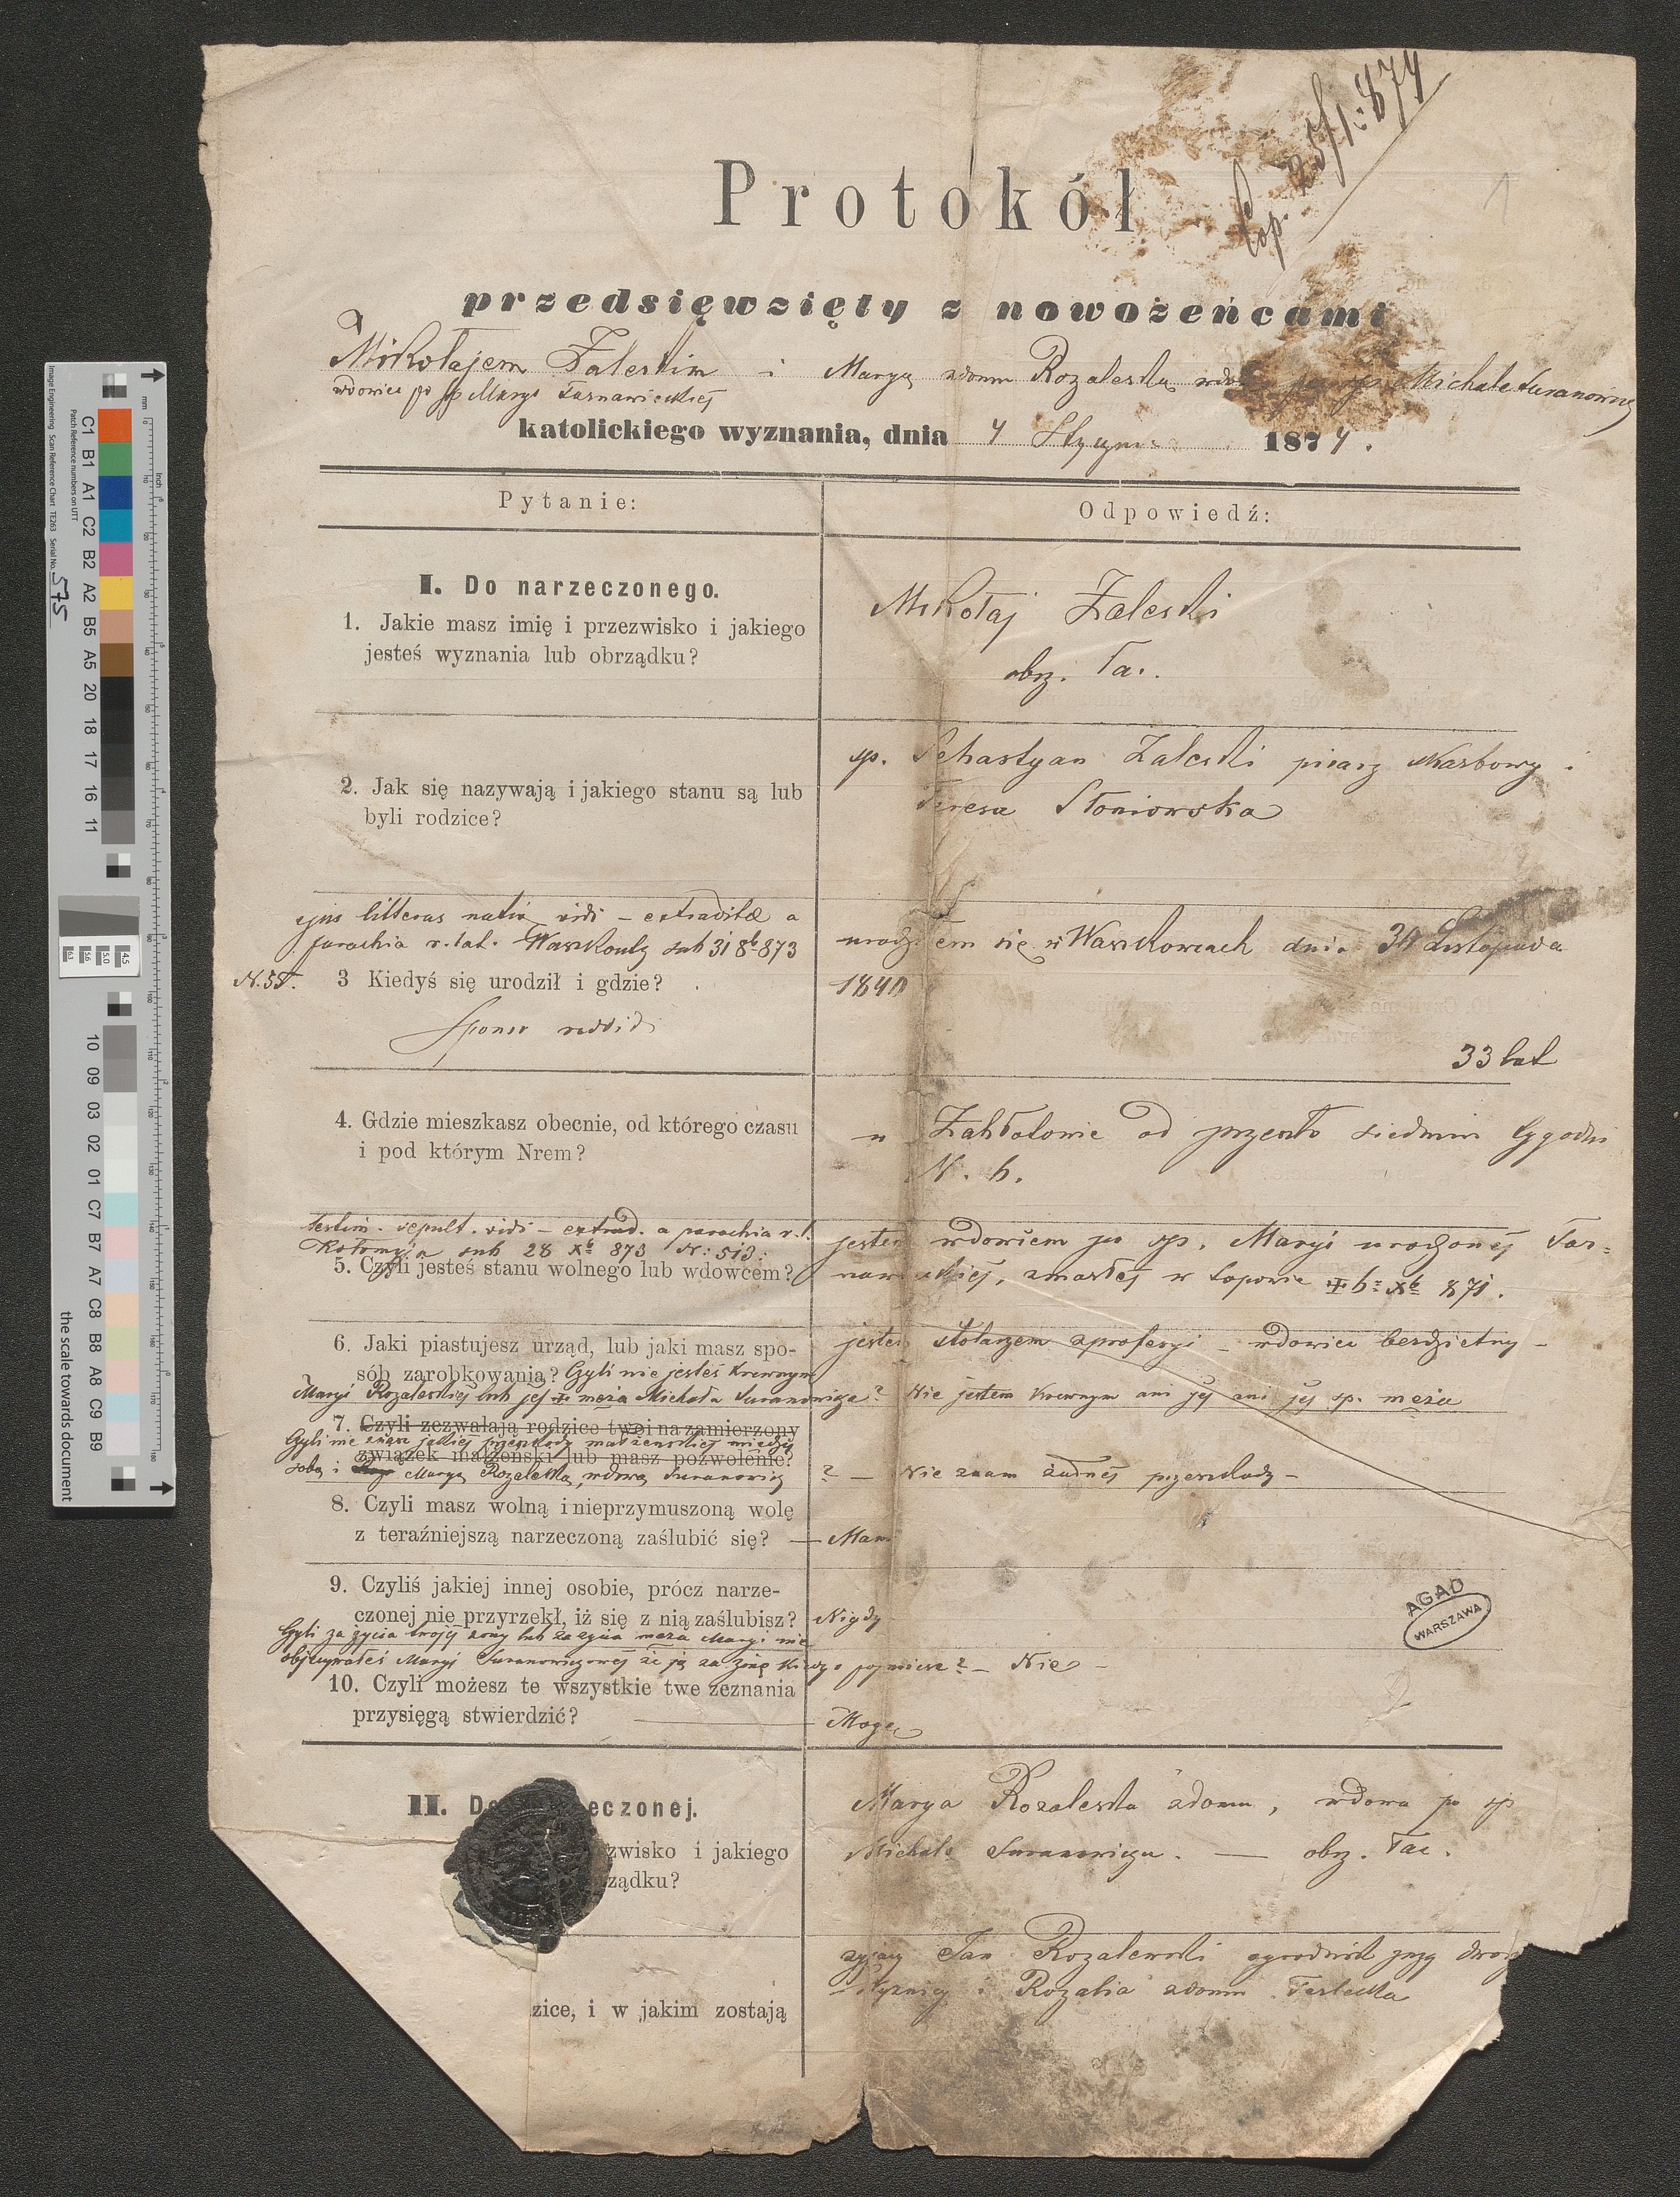 Cop. 25/1: 874
1
Protokół
przedsięwzięty z nowożeńcami
Mikołajem Zaleskim i Maryą zdomu Rozaleską Michale Suranowiczu
wdowiec po śp Maryi Tarnawieckiej
katolickiego wyznania, dnia 4 Stycznia 1874.
Pytanie:
Odpowiedź:
I. Do narzeczonego.
1. Jakie masz imię i przezwisko i jakiego
jesteś wyznania lub obrządku?
Mikołaj Zaleski
obrz. łac.
2. Jak się nazywają i jakiego stanu są lub
byli rodzice?
śp. Sebastyan Zaleski pisarz skarbowy i
Teresa Słoniowska
ejus litteras nativ. vidi – extraditae a
parochia r. lat. Waszkoutz sub 31 8b 873
N. 55.
3 Kiedyś się urodził i gdzie?
Sponso reddidi
urodziłem się w Waszkowcach dnia 30 Listopada
1840
33 lat
4. Gdzie mieszkasz obecnie, od którego czasu
i pod którym Nrem?
w Zabłotowie od przeszło siedmiu tygodni
N. 6.
testim. sepult. vidi – extrad. a parochia r. l.
Kołomyja sub 28 Xb 873 N: 513:
5. Czyli jesteś stanu wolnego lub wdowcem?
jestem wdowcem po śp. Maryi urodzonej Tar=
nawieckiej, zmarłej w Łopowie Xb 871.
6. Jaki piastujesz urząd, lub jaki masz spo-
sób zarobkowania? Czyli nie jesteś krewnym
Maryi Rozaleskiej lub jej męża Michała Suranowicza?
jestem stolarzem z profesyi – wdowiec bezdzietny –
Nie jestem krewnym ani jej ani jej śp. męża
7. Czyli zezwalają rodzice twoi na zamierzony
Czyli nie znasz jakiej przeszkody małżeńskiej między
związek małżeński lub masz pozwolenie?
sobą i Maryą Rozaleską, wdową Suranowicz
? – Nie znam żadnej przeszkody –
8. Czyli masz wolną i nieprzymuszoną wolę
z teraźniejszą narzeczoną zaślubić się? — Mam
9. Czyliś jakiej innej osobie, prócz narze-
czonej nie przyrzekł, iż się z nią zaślubisz? Nigdy –
Czyli za życia twojej żony lub za życia męża Maryi nie
objecywałeś Maryi Suranowiczowej że ją za żonę kiedyś pojmiesz? – Nie –
10. Czyli możesz te wszystkie twe zeznania
przysięgą stwierdzić? — Mogę
AGAD
WARSZAWA
II. Do eczonej.
zwisko i jakiego
ządku?
Marya Rozaleska zdomu, wdowa po śp
Michale Suranowiczu. — obrz. łac.
zice, i w jakim zostają
żyjący Jan Rozalewski ogrodnik przy dworz
i Rozalia zdomu Terlecka
Image Engineering Scan Reference Chart TE263 Serial No. 575
Patch Reference numbers on UTT
C1 B1 A1 C2 B2 A2 B5 A5 20 18 17 16 11
10 09 03 02 01 C7 B7 A7 C8 B8 A8 C9 B9
the scale towards document